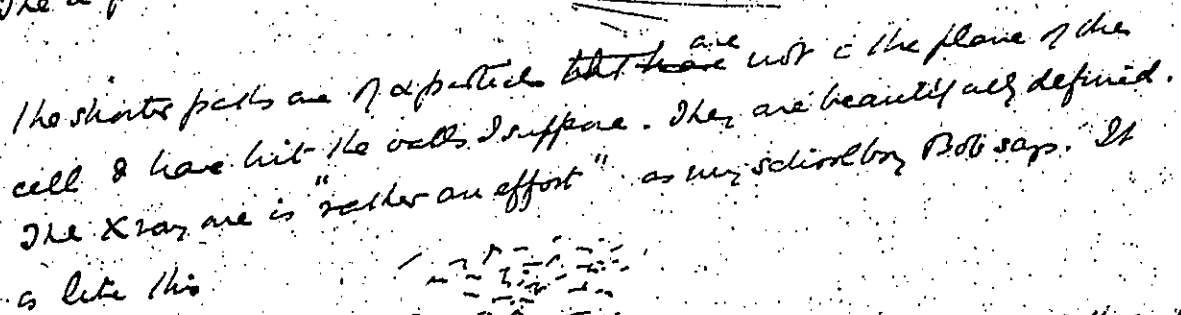 The α p
The shorter paths are of α particles that have are not in the plane of the
cell & have hit the walls I suppose. They are beautifully defined.
The X ray one is "rather an effort" as my schoolboy Bob says. It
is like this